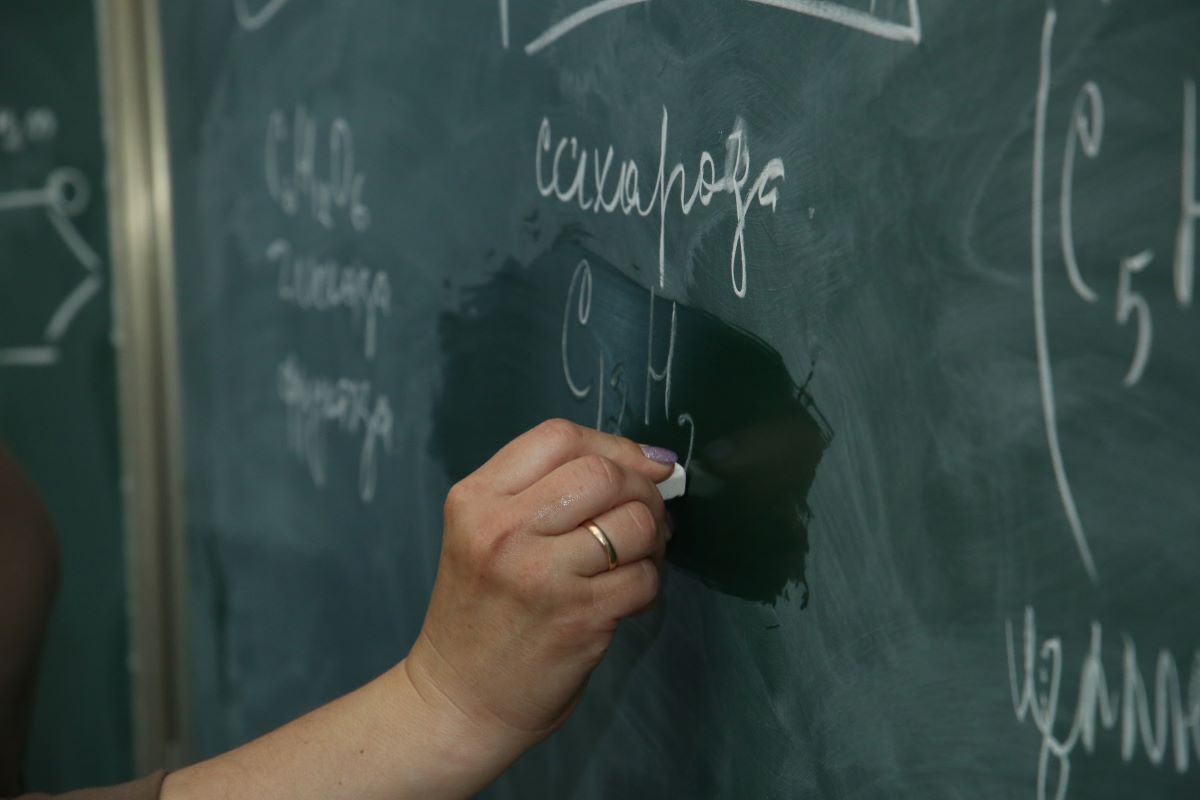 C₆H₁₂O₆
глюкоза
фруктоза
сахароза
C₁₂H₂
(C₅H
целлю